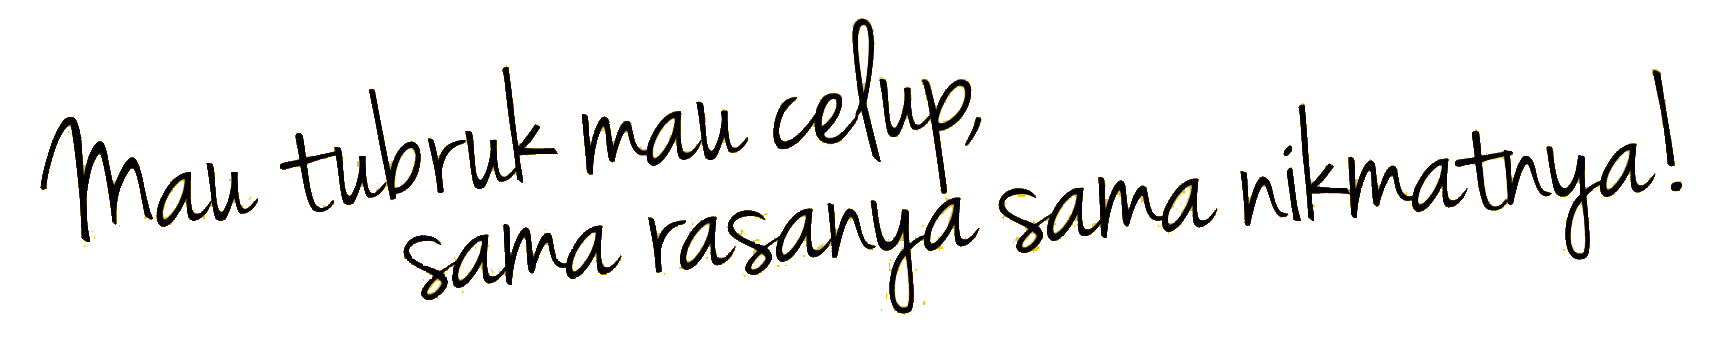 Mau tubruk mau celup,
sama rasanya sama nikmatnya!